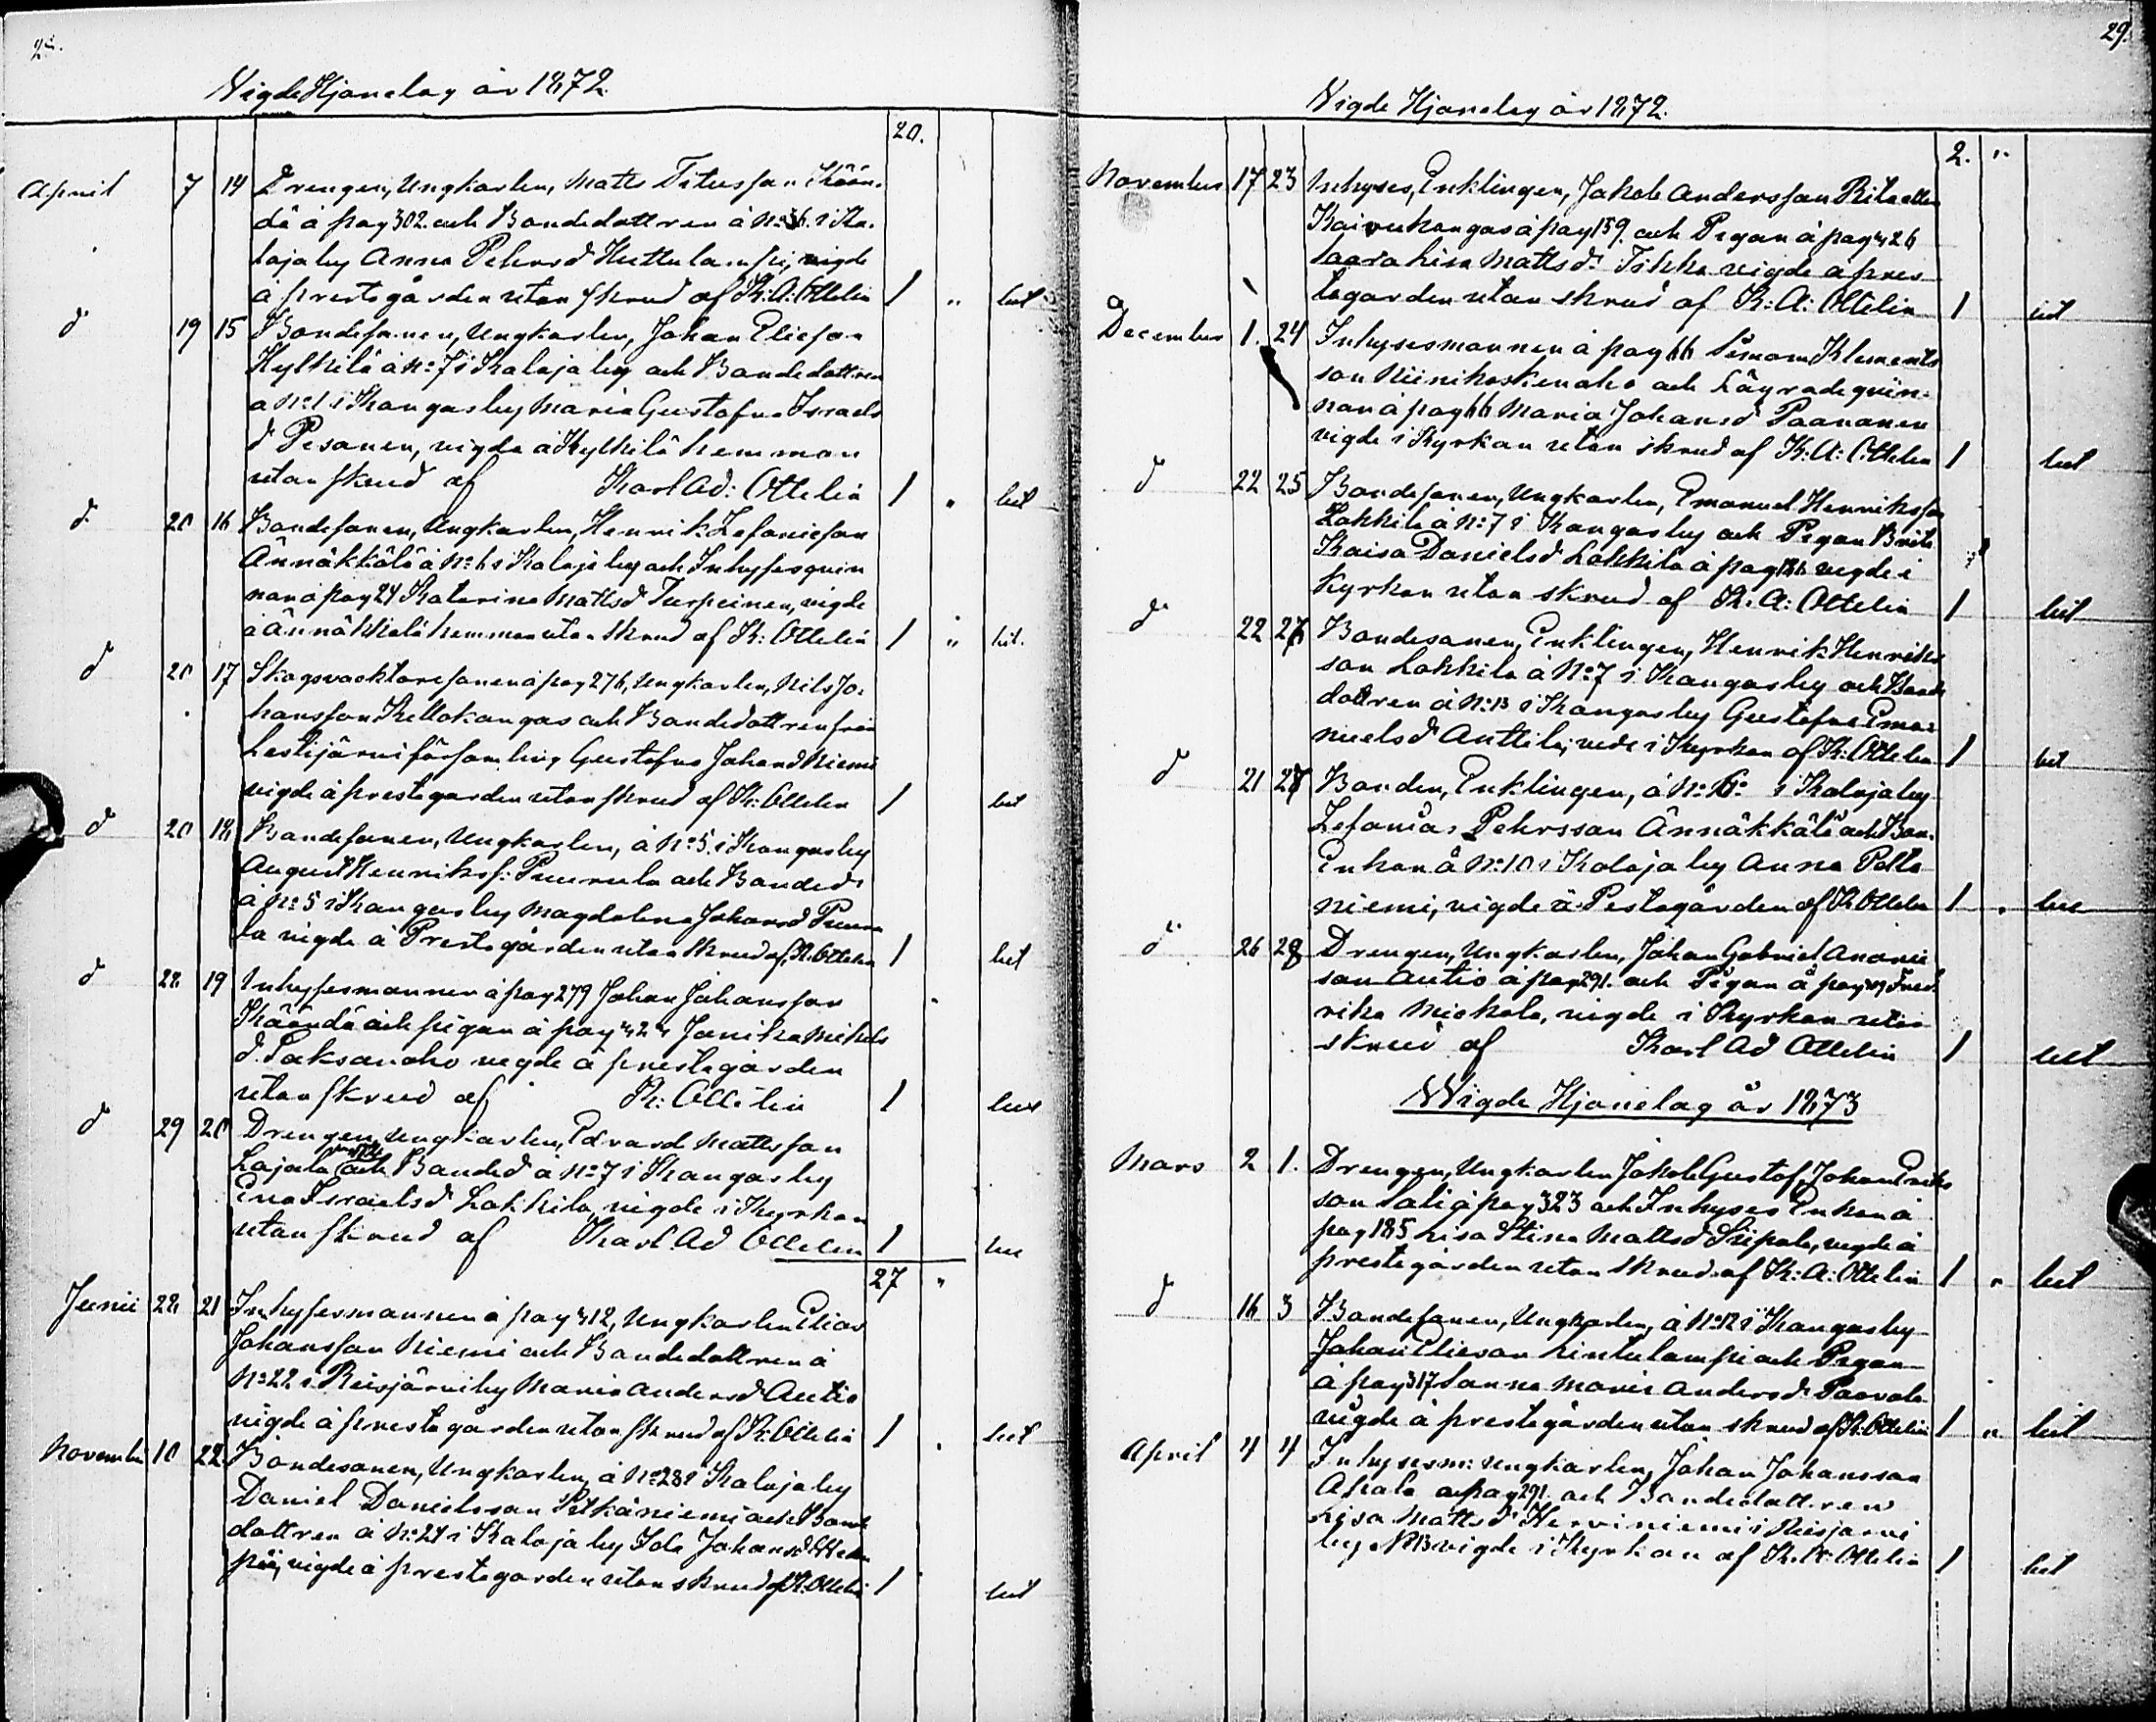 28.
Vigde Hjonelag år 1872.
20.
April 7 14 Drengen, Ungkarlen, Matts Titusson Kään-
dä å pag 302. och Bondedottren å No: 36. i Ka-
laja by Anna Pehrsd Huttulampi, vigde
å prestegården utan skrud af K: A: Ottelin 1 " lut
d 19 15 Bondesonen, Ungkarlen, Johan Eliesson
Kylkilä å No: 7 i Kalaja by och Bondedottren
å No: 1 i Kangasby Maria Gustafva Israels
d Pesonen, vigde å Kylkilä hemman
utan skrud af Karl Ad: Ottelin 1 " lut
d. 20 16 Bondesonen, Ungkarlen, Henrik Zefaniesson
Ännäkkälä å No: 6 i Kalaja by och Inhysesquin
nan å pag 24 Katarina Mattsd Turpeinen, vigde
å Ännäkkälä hemman utan skrud af K: Ottelin 1 " lut.
d 20 17 Skogsvacktaresonen å pag 276, Ungkarlen, Nils Jo-
hansson Kellokangas och Bondedottren från
Lestijärvi församling Gustafva Johansd Niemi
vigde å prestegården utan skrud af K: Ottelin 1 lut
d 20 18 Bondesonen, Ungkarlen, å No: 5. i Kangasby
August Henrikss: Puurula och Bonded:
å No: 5 i Kangasby Magdalena Johansd Puuru
la vigde å Prestegården utan skrud af K. Ottelin 1 lut
d 28 19 Inhysesmannen å pag 279 Johan Johansson
Käändä och pigan å pag 424 Janika Mickels
d. Paksuaho vigde å prestegården
utan skrud af K: Ottelin 1 lut
d 29 20 Drengen, Ungkarlen, Edvard Mattsson
Lajala och Bonded å No: 7 i Kangasby
Eva Israelsd Lakkila, vigde i Kyrkan
utan skrud af Karl Ad Ottelin 1 lut
27 "
Junii 28 21 Inhysesmannen å pag 412, Ungkarlen Elias
Johansson Niemi och Bondedottren å
No: 22 i Reisjärviby Maria Andersd Autio
vigde å prestegården utan skrud af K: Ottelin 1 . lut
November 10 22 Bondesonen, Ungkarlen, å No: 28 i Kalajaby
Daniel Danielsson Petkäniemi och Bonde
dottren å No: 24 i Kalaja by Ida Johansd
vigde å prestegården utan skrud af K. Ottelin 1 lut
29.
Vigde Hjonelag år 1872.
2. "
November 17 23 Inhyses, Enklingen, Jakob Andersson Rita eller
Kaivukangas å pag 159. och Pigan å pag 426
Saara Lisa Mattsd: Tikka vigde å pres-
tegården utan skrud af K: A: Ottelin 1 lut
December 1. 24 Inhysesmannen å pag 66 Simon Klements
son Niinikoskenaho och Lägradequin-
nan å pag 66 Maria Johansd Paananen
vigde i Kyrkan utan skrud af K: A: Ottelin 1 lut
d 22 25 Bondesonen, Ungkarlen, Emanuel Henriksson
Lakkila å No: 7 i Kangasby och Pigan Brita
Kaisa Danielsd Lakkila å pag vigde i
Kyrkan utan skrud af K. A: Ottelin 1 lut
d 22 26 Bondesonen, Enklingen, Henrik Henriks
son Lakkila å No: 7 i Kangasby och Bonde
dottren å No: 13 i Kangasby Gustafva Ema-
nuelsd Anttila, vede i Kyrkan af K: Ottelin 1 lut
d 21 27 Bonden, Enklingen, å No: 6: i Kalajaby
Zefanias Pehrsson Ännäkkälä och Bon-
Enkan å No: 10 i Kalaja by Anna Polta
niemi, vigde å Pestegården af K Ottelin 1 . lut
d 26 28 Drengen, Ungkarlen, Johan Gabriel Ananie
son Autio å pag 291. och Pigan å pag Fred-
rika Niskala, vigde i Kyrkan utan
skrud af Karl Ad Ottelin 1 lut
Wigde Hjonelag år 1873
Mars 2 1. Drengen, Ungkarlen Jakob Gustaf Johan Eriks
son Sali å pag 323 och Inhyses Enkan å
pag 185 Lisa Stina Mattsd Siipola, vigde å
prestegården utan skrud af K: A: Ottelin 1 " lut
d 16 3 Bondesonen, Ungkarlen, å No: 12 i Kangasby
Johan Elieson Lintulampi och Pigan
å pag 317 Sanna Maria Andersd Paavola
vigde å prestegården utan skrud af K. Ottelin 1 " lut
April 4 4 Inhysesm: Ungkarlen, Johan Johansson
Ahola å pag 291. och Bondedottren
Lisa Mattsd Herviniemi i Reisjärvi
by No 13 vigde i Kyrkan af K. A: Ottelin 1 lut